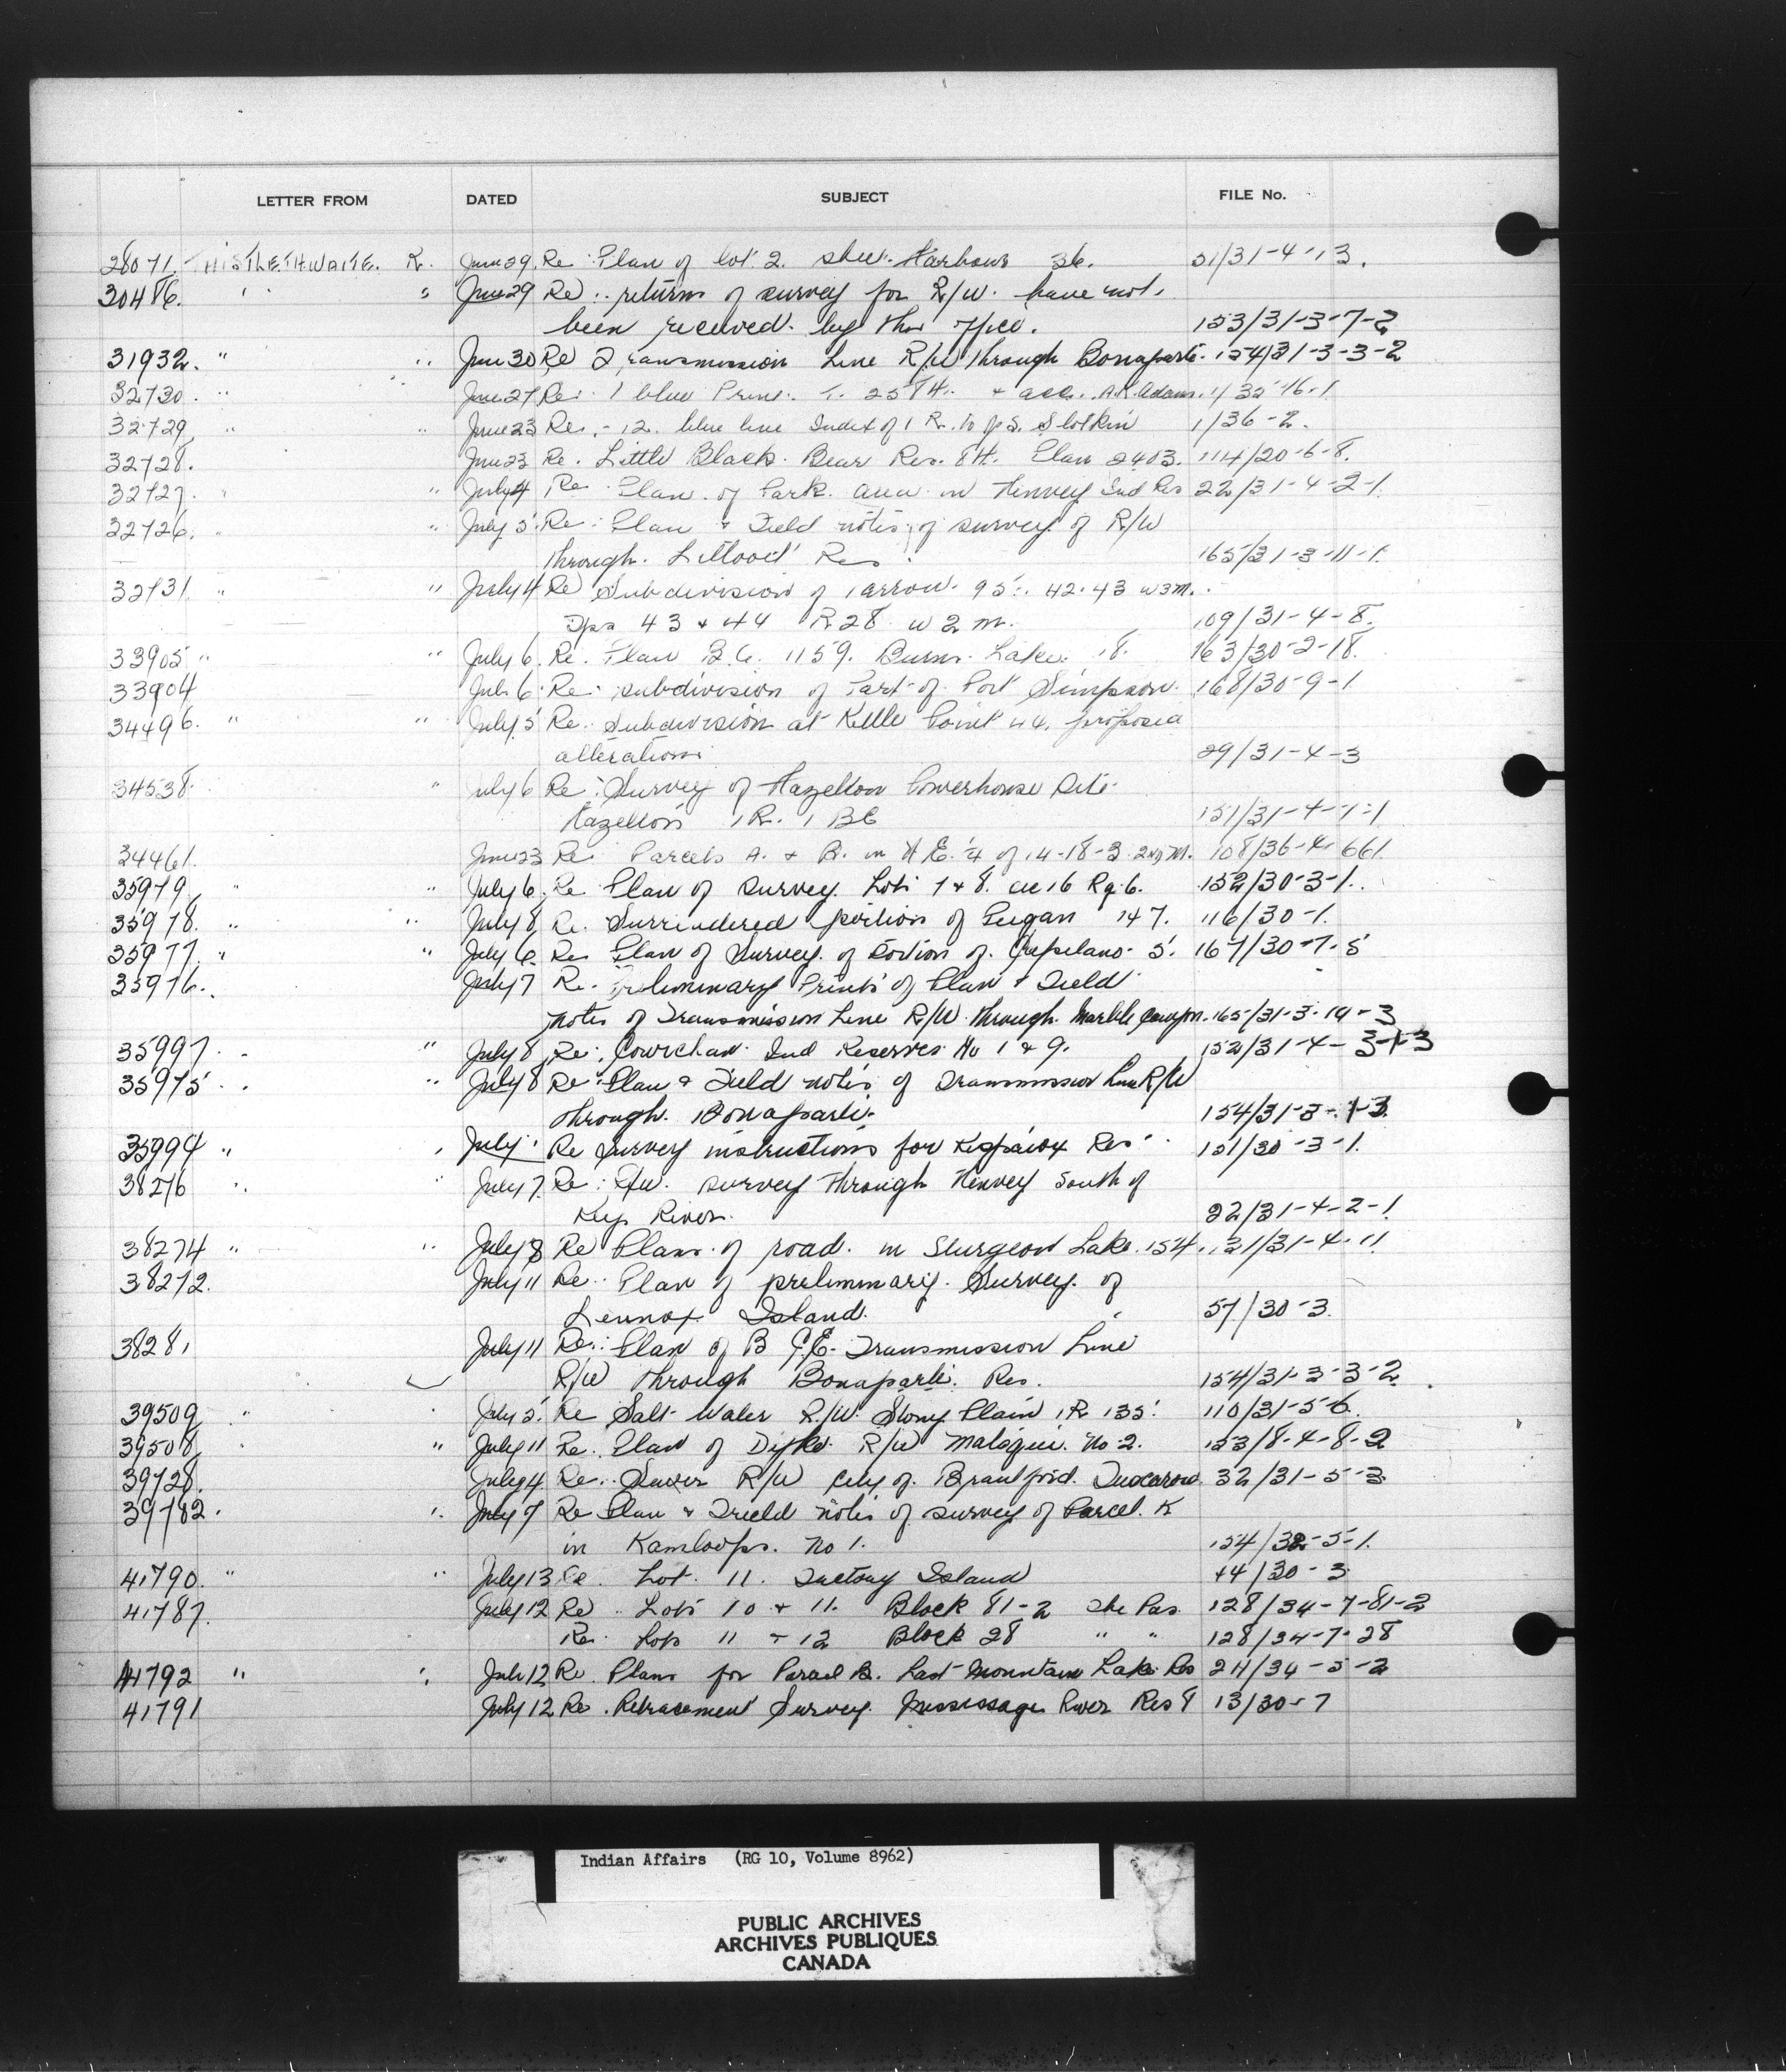 LETTER FROM DATED SUBJECT FILE No.
28071. THISTLETHWAITE. R. June 29. Re Plan of lot 2. Harbour 36. 21/31-4-13.
30486. " " June 29 Re: returns of survey for R/W. have not.
been received. by the office. 153/31-3-7-2
31932. " " June 30 Re Transmission Line R/W through Bonaparte. 154/31-3-3-2
32730. " " June 27 Re: 1 blue Print. T. 258H. + acc. A.K. Adams. 1/32-16-1
32729. " " June 23 Re. - 12. blue line Index of I R. to J.S. Slotkin 1/36-2.
32728. June 23 Re. Little Black. Bear Res. 84. Plan 2403. 114/20-6-8.
32727. " " July 4 Re Plan. of Park. area in Henvey Ind Res 22/31-4-2-1.
32726. " July 5. Re: Plan & Field notes, of survey of R/W
through. Lillooet Res. 165/31-3-11-1.
32731. " " July 4 Re Subdivision of Carrow. 95. 42.43 W3M.
Tps 43 & 44 R 28 W 2 M. 109/31-4-8.
33905 " " July 6. Re. Plan B.C. 1159. Burns Lake. 18. 163/30-2-18.
33904 July 6. Re. subdivision of Part of Port Simpson. 168/30-9-1
34496. " " July 5 Re. Subdivision at Kettle Point 44. proposed
alterations 29/31-4-3
34538. " July 6 Re: Survey of Hazelton Powerhouse Site.
Hazelton I R. 1 BC 151/31-4-1-1
34461. June 23 Re Parcels A. & B. in N E. 1/4 of 14-18-3. 2nd M. 108/36-4-661.
35979 " " July 6. Re Plan of survey. Lots 7 & 8. sec 16 Rg. 6. 152/30-3-1.
35978. " " July 8 Re. Surrendered portion of Peigan 147. 116/30-1.
35977. " " July 6. Re Plan of Survey. of Portion of. Capilano 5. 167/30-7-5
35976. July 7 Re. Preliminary Prints of Plan & Field
notes of Transmission Line R/W. through. Marble Canyon. 165/31-3-19-3
35997. " " July 8 Re: Cowichan Ind Reserves No 1 & 9. 152/31-4-3-1-3
35975 " " July 8 Re: Plan & Field notes of Transmission Line R/W
through. Bonaparte. 154/31-3-1-3.
35994 " " July Re Survey instructions for Kispaiox Res. 151/30-3-1.
38276 " " July 7. Re: R/W. survey through Henvey South of
Key River. 22/31-4-2-1.
38274 " " July 8 Re Plans of road. in Sturgeon Lake. 154. 121/31-4-11
38272. July 11 Re. Plan of preliminary. Survey. of
Lennox Island. 57/30-3.
38281 July 11 Re: Plan of B C.E. Transmission Line
R/W through Bonaparte. Res. 154/31-3-3-2.
39509 " July 5. Re Salt Water R/W. Stony Plain I R 135. 110/31-5-6.
39508 " " July 11 Re. Plan of Dyke. R/W Matsqui. No 2. 153/8-4-8-2
39728. July 4 Re. Sewer R/W City of. Brantford. Tuscarora. 32/31-5-3
39782. " July 7 Re Plan & Field notes of survey of Parcel. K
in Kamloops. No 1. 154/32-5-1.
41790. " " July 13 Re. Lot. 11. Island 44/30-3
41787. July 12 Re Lots 10 & 11. Block 81-2 The Pas 128/34-7-81-2
Re. Lots 11 & 12 Block 28 " " 128/34-7-28
41792 " " July 12 Re. Plans for Parcel B. Last Mountain Lake Res 24/34-5-2
41791 July 12 Re. Retracement Survey. Mississage River Res 8 13/30-7
Indian Affairs (RG 10, Volume 8962)
PUBLIC ARCHIVES
ARCHIVES PUBLIQUES
CANADA